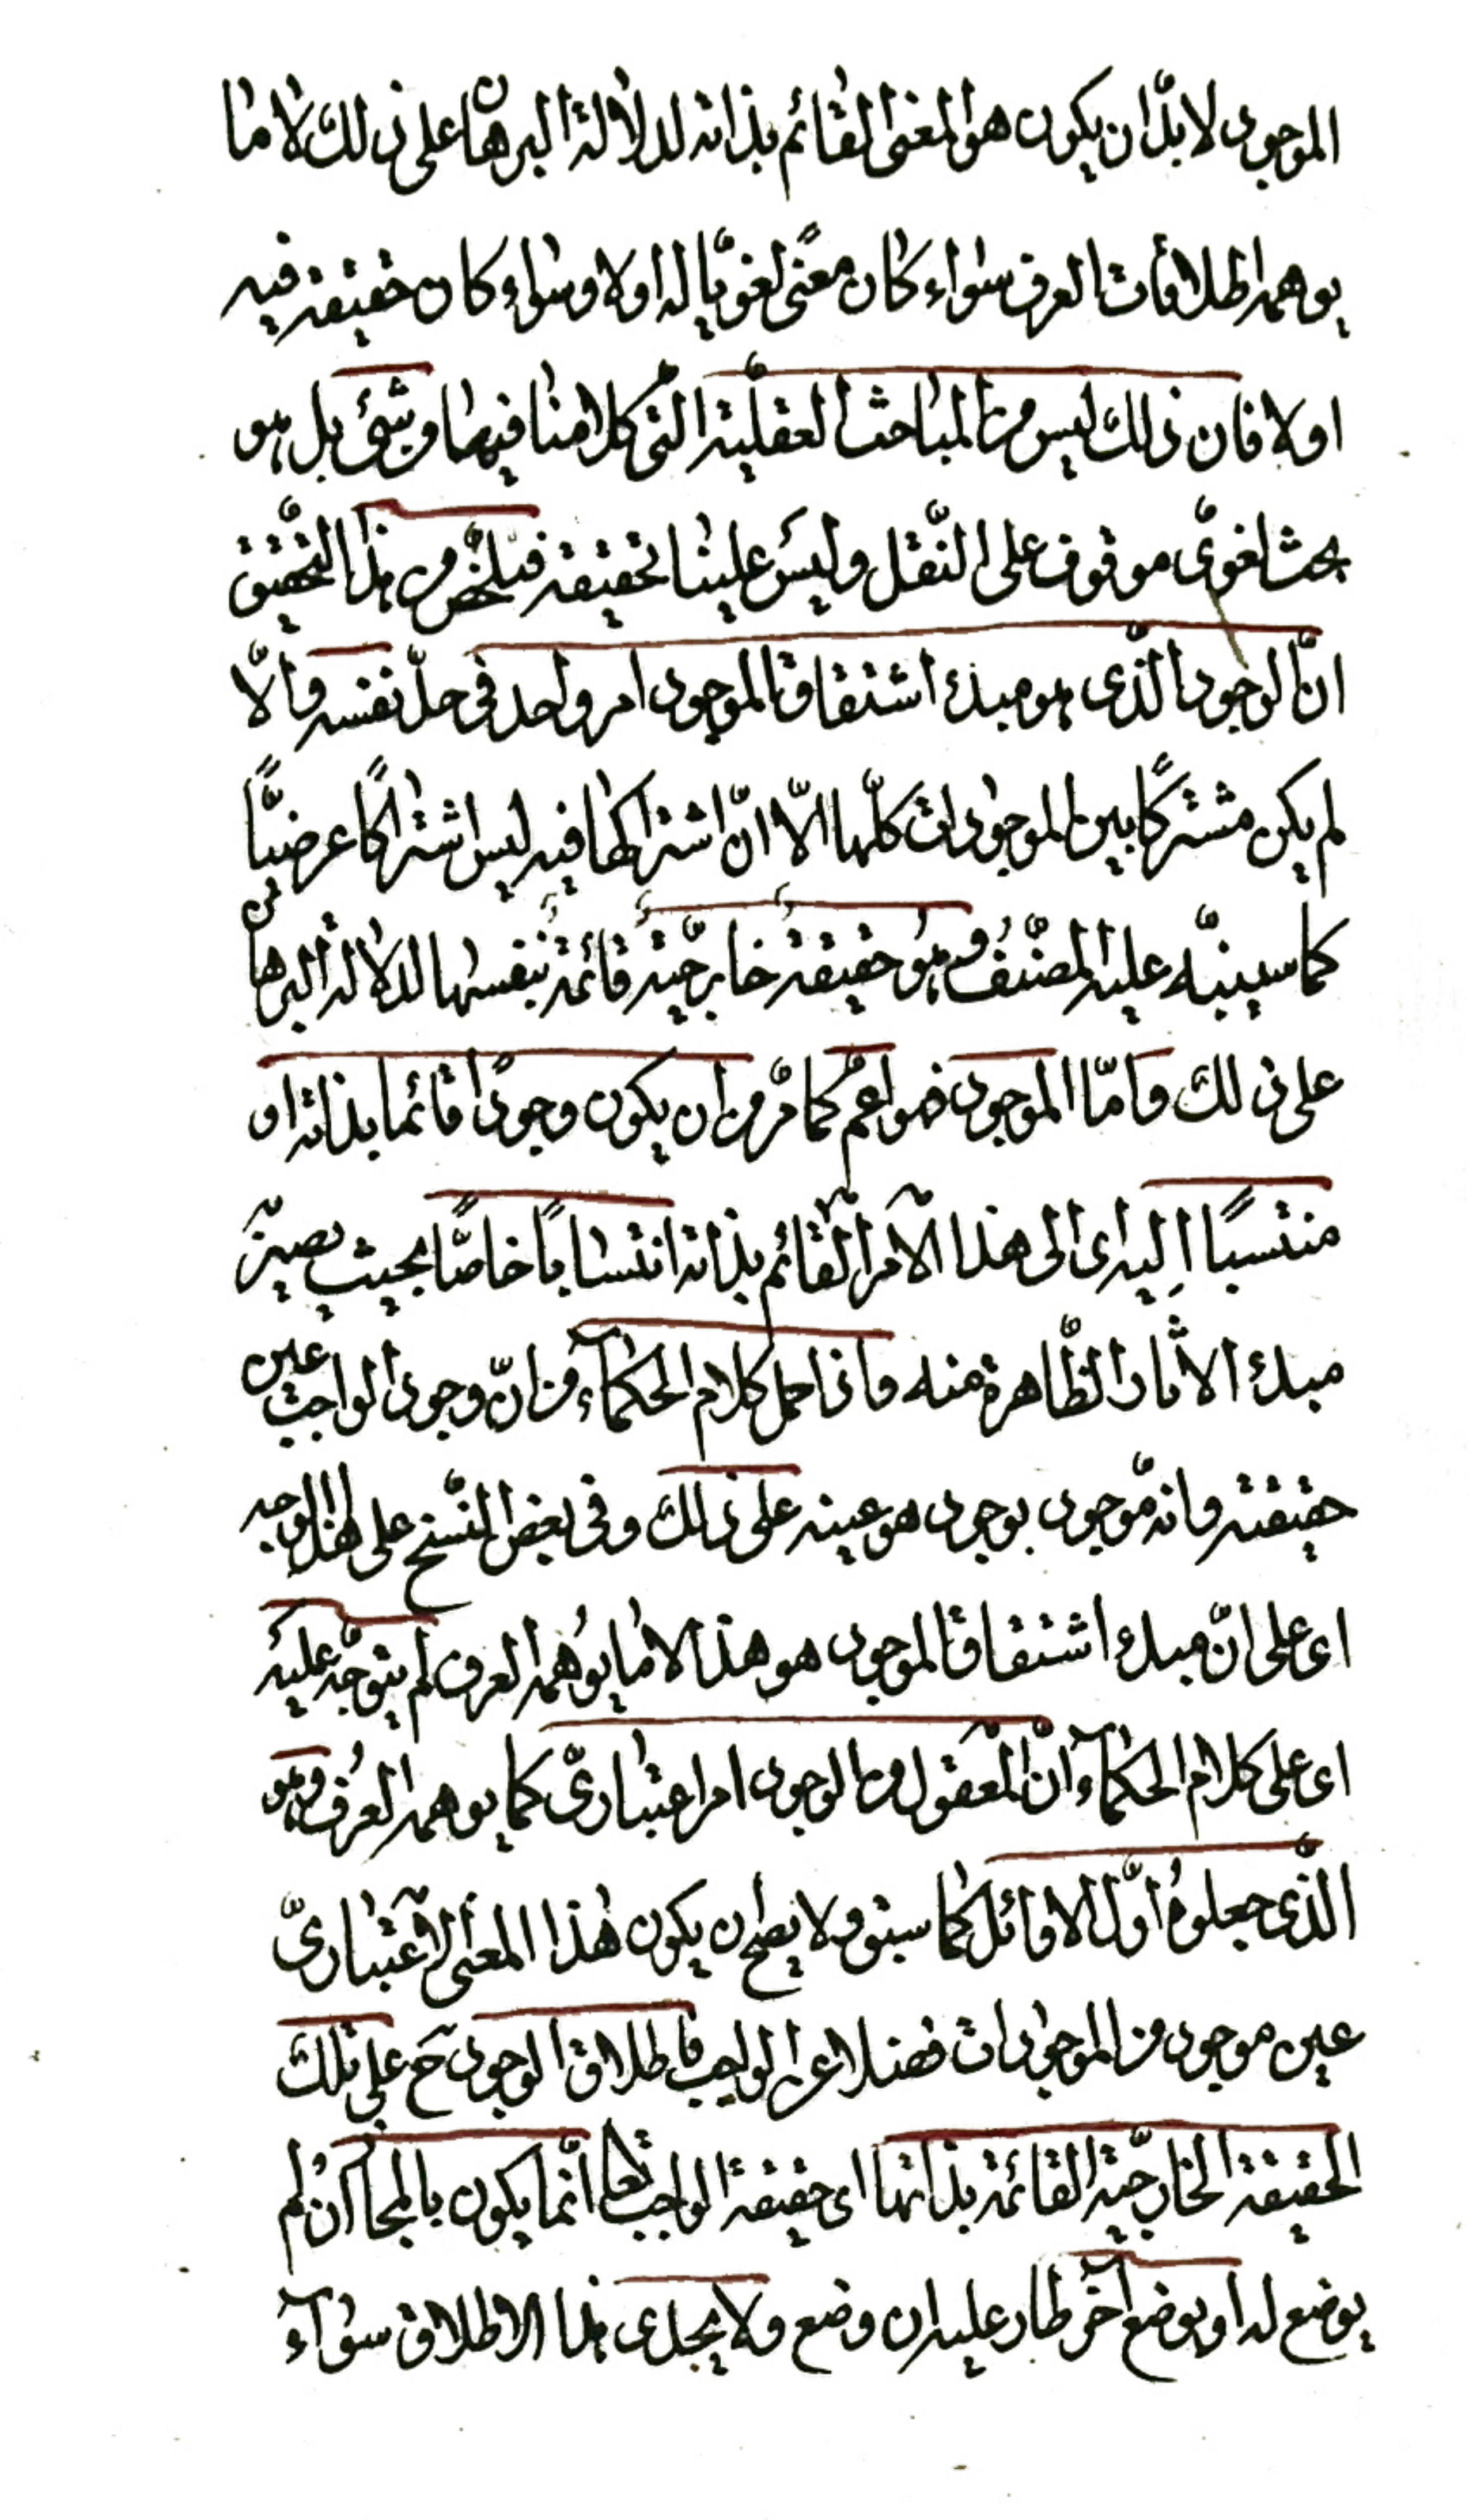 الموجود لا بدّ ان يكون هو المعنى القائم بذاته لدلالة البرهان على ذلك لا ما
يوهمه اطلاقات العرف سواء كان معنًى لغويّا له اولا وسواء كان حقيقة فيه
اولا فان ذلك ليس من المباحث العقليّة التى كلامنا فيها فى شئ بل هو
بحث لغوىّ موقوف على النّقل وليس علينا تحقيقه فتلخّص من هذا التحقيق
انّ الوجود الّذى هو مبدء اشتقاق الموجود امر واحد فى حدّ نفسه والّا
لم يكن مشتركًا بين الموجودات كلّها الّا انّ اشتراكها فيه ليس اشتراكًا عرضيًّا
كما سينبّه عليه المصنّف وهو حقيقة خارجيّة قائمة بنفسها لدلالة البرهان
على ذلك وامّا الموجود فهو اعمّ كما مرّ من ان يكون وجودًا قائما بذاته او
منتسبًا اليه اى الى هذا الامر القائم بذاته انتسابًا خاصًّا بحيث يصير
مبدء الاثار الظّاهرة عنه واذا حمل كلام الحكمآء من انّ وجود الواجب عين
حقيقته وانه موجود بوجود هو عينه على ذلك وفى بعض النّسخ على هذا الوجه
اى على انّ مبدء اشتقاق الموجود هو هذا لا ما يوهمه العرف لم يتوجّه عليه
اى على كلام الحكمآء انّ المعقول من الوجود امر اعتبارىّ كما يوهمه العرف وهو
الّذى جعلوه اوّل الاوائل كما سبق ولا يصحّ ان يكون هذا المعنى الاعتبارىّ
عين موجود من الموجودات فضلا عن الواجب فاطلاق الوجود ح على تلك
الحقيقة الخارجيّة القائمة بذاتها اى حقيقة الواجب تعا انّما يكون بالمجاز ان لم
يوضع له او بوضع آخر طار عليه ان وضع ولا يجدى هذا الاطلاق سوآء